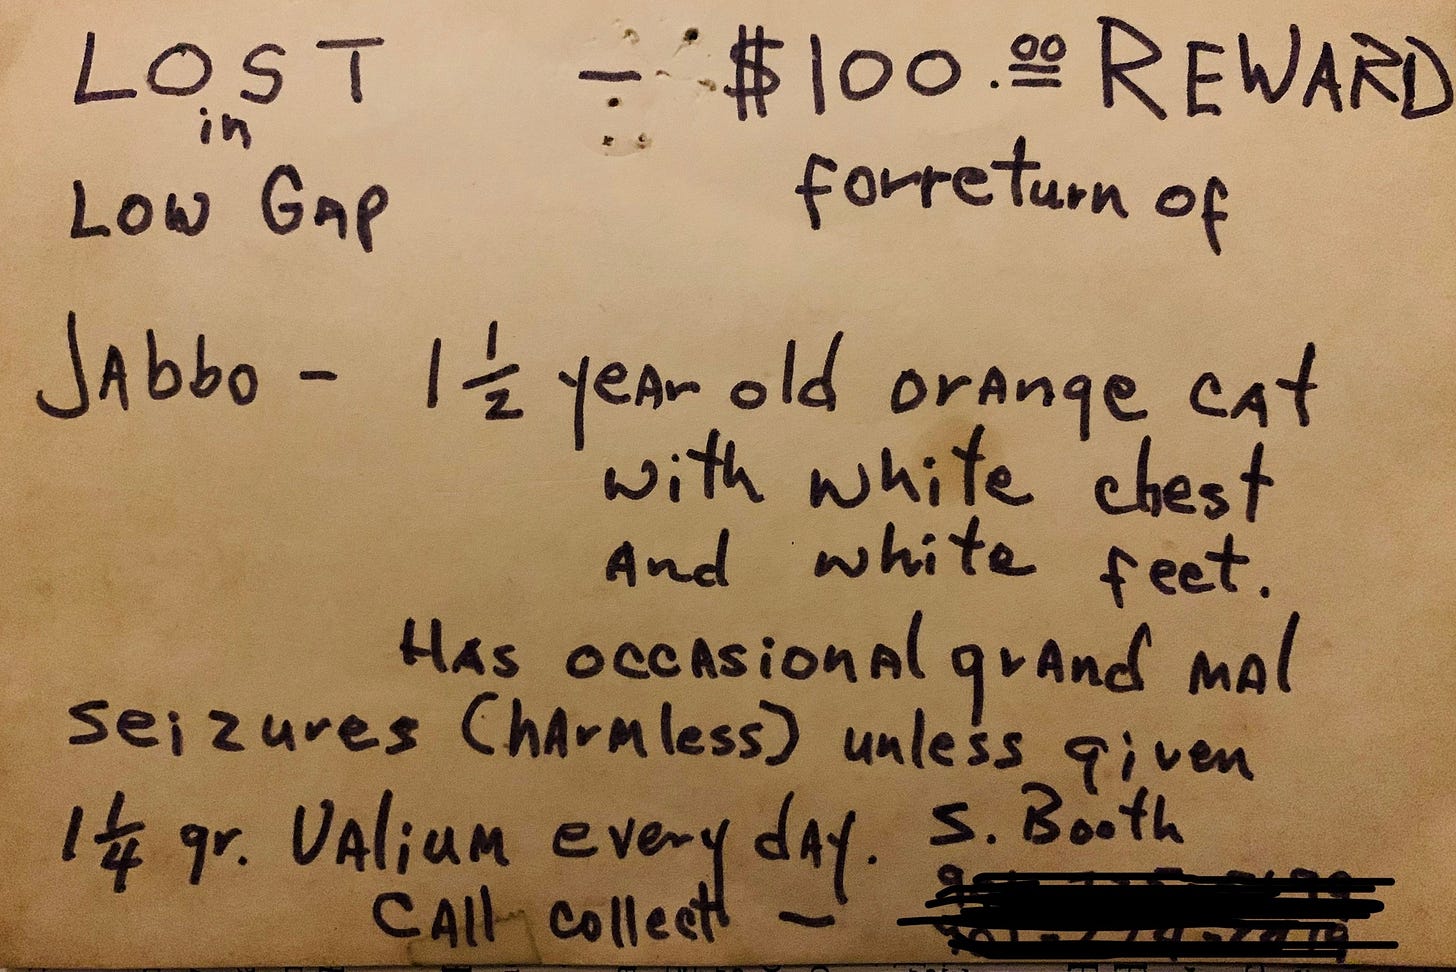 LOST - $100.00 REWARD
in
LOW GAP forreturn of
JAbbo - 1 1/2 yeAr old orAnge cAt
with white chest
And white feet.
HAs occAsionAl grAnd mAl
seizures (hArmless) unless given
1 1/4 gr. VAlium every dAy. S. Booth
CAll collect -